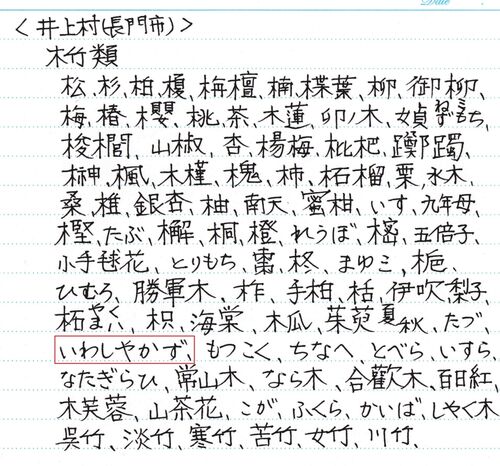 <井上村(長門市)>
木竹類
松、杉、柏、榎、栴檀、楠、楪葉、柳、御柳、
梅、椿、櫻、桃、茶、木蓮、卯ノ木、女貞
梭櫚、山椒、杏、楊梅、枇杷、躑躅、
榊、楓、木槿、槐、柿、柘榴、栗、水木
桑、椎、銀杏、柚、南天、蜜柑、いす、九年母、
樫、たぶ、檞、桐、橙、れうぼ、樒、五倍子、
小手毬花、とりもち、棗、柊、まゆミ、梔、
ひむろ、勝軍木、柞、手柏、栝、伊吹、梨子
柘、枳、海棠、木瓜、茱萸夏秋、たづ、
いわしやかず、もつこく、ちなへ、とべら、いすら、
なたぎらひ、常山木、なら木、合歡木、百日紅、
木芙蓉、山茶花、こが、ふくら、かいば、しやく木
呉竹、淡竹、寒竹、苦竹、女竹、川竹、